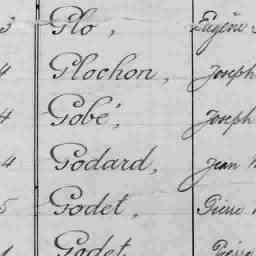 3 Glo, Eugène
4 Glochon, Joseph
4 Gobé, Joseph
4 Godard, Jean
5 Godet, Pierre
Godet